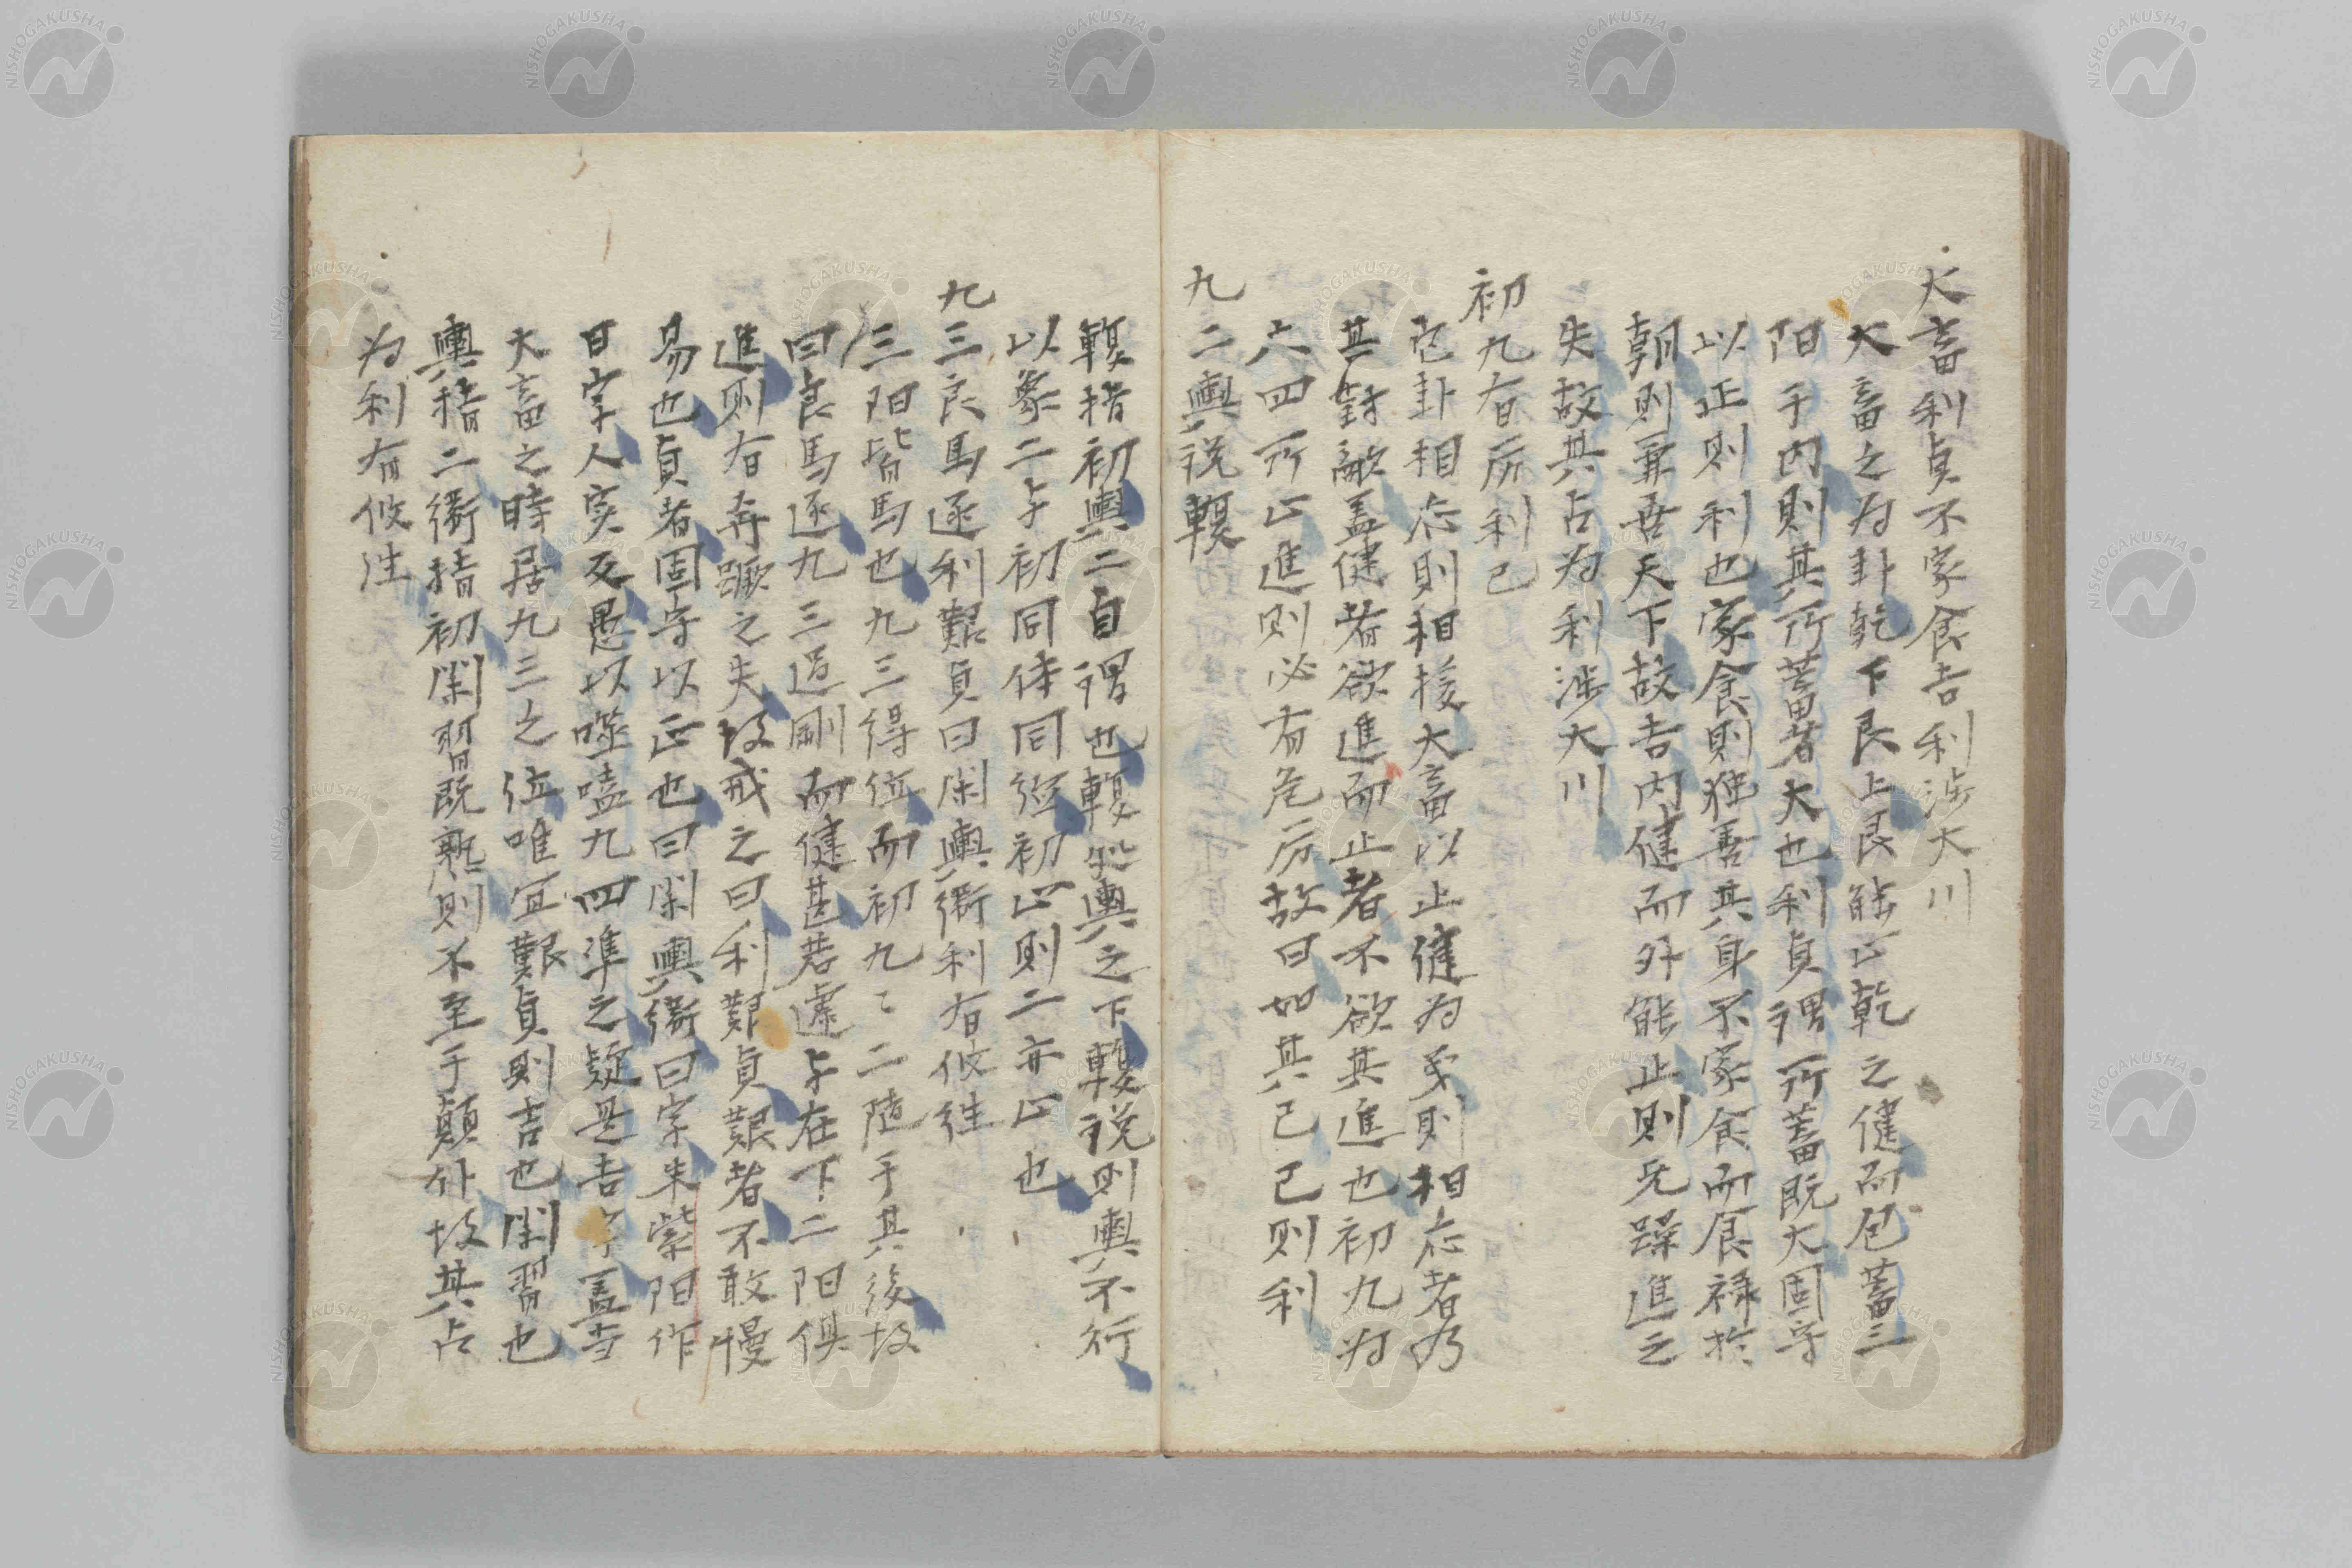 大畜利貞不家食吉利涉大川
大畜之為卦乾下艮上艮能止乾之健而包蓄三
阳于内則其所蓄者大也利貞謂所蓄既大固守
以正則利也家食則独善其身不家食而食禄於
朝則兼善天下故吉内健而外能止則无躁進之
失故其占為利涉大川
初九有厉利已
它卦相応則相援大畜以止健为义則相応者乃
其對敵盖健者欲進而止者不欲其進也初九为
六四所止進則必有危厉故曰如其已已則利
九二輿説輹
輹指初輿二自謂也輹在輿之下輹説則輿不行
以象二与初同体同德初止則二亦止也
九三良馬逐利艱貞曰閑輿衛利有攸往
三阳皆馬也九三得位而初九九二随于其後故
曰良馬逐九三過剛而健甚若遽与在下二阳俱
進則有奔蹶之失故戒之曰利艱貞艱者不敢慢
易也貞者固守以正也曰閑輿衛曰字朱蒙阳作
日字人实反愚以噬嗑九四準之疑是吉字盖当
大畜之時居九三之位唯宜艱貞則吉也閑習也
輿指二衛指初閑習既熟則不至于顛仆故其占
为利有攸往